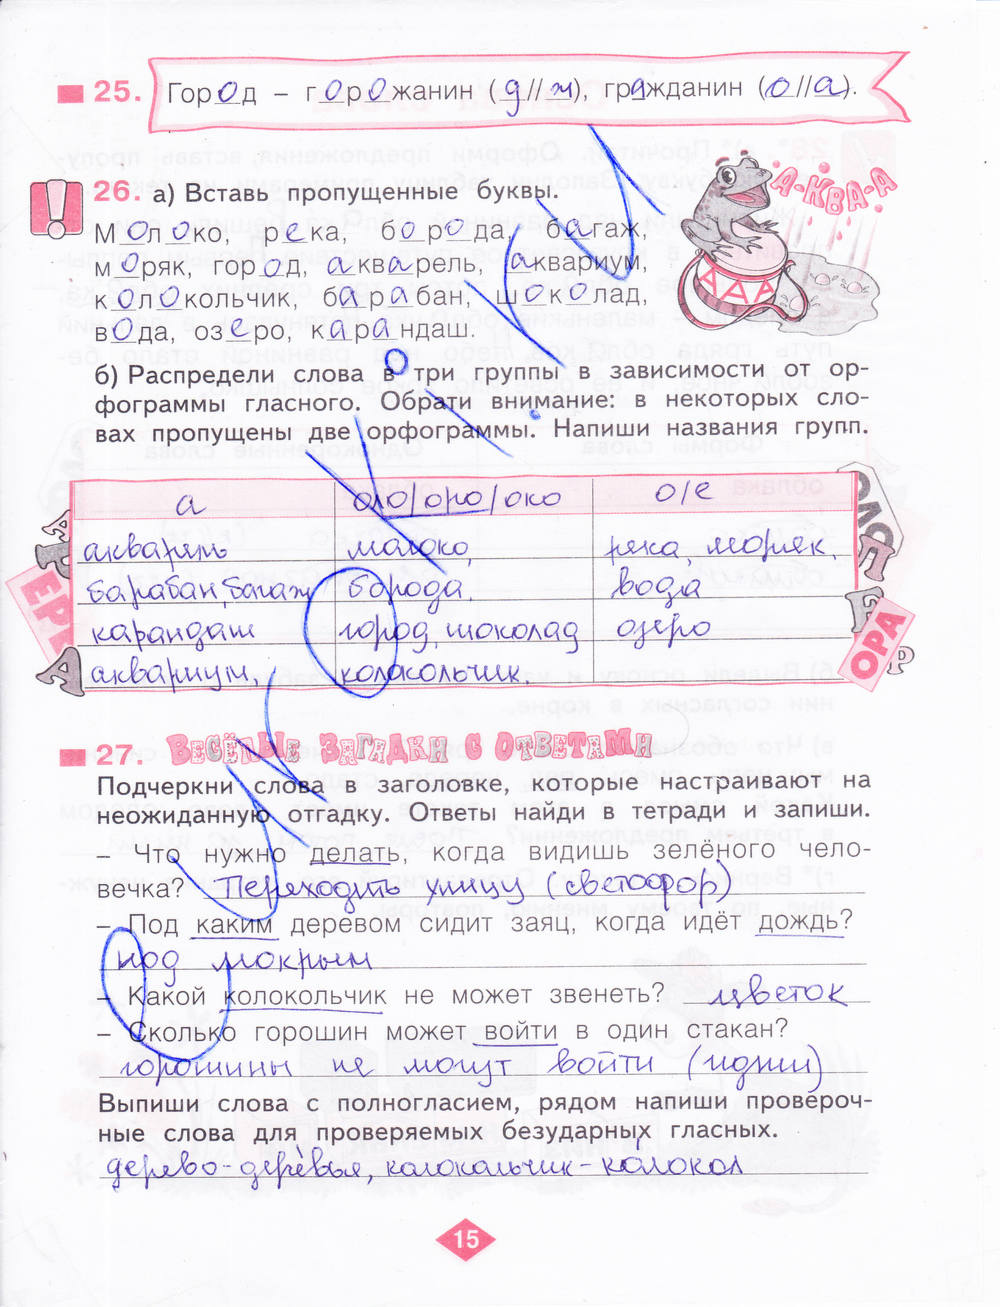 25. Город – горожанин (д//ж), гражданин (о//а).
А-КВА-А
26. а) Вставь пропущенные буквы.
Молоко, река, борода, багаж,
моряк, город, акварель, аквариум,
колокольчик, барабан, шоколад,
вода, озеро, карандаш.
б) Распредели слова в три группы в зависимости от ор-
фограммы гласного. Обрати внимание: в некоторых сло-
вах пропущены две орфограммы. Напиши названия групп.
а оло/оро/око о/е
акварель молоко, река, моряк,
барабан, багаж борода, вода
карандаш город, шоколад озеро
аквариум, колокольчик.
ЕРЕ
ОЛО
ОРА
27. ВЕСЁЛЫЕ ЗАГАДКИ С ОТВЕТАМИ
Подчеркни слова в заголовке, которые настраивают на
неожиданную отгадку. Ответы найди в тетради и запиши.
– Что нужно делать, когда видишь зелёного чело-
вечка? Переходить улицу (светофор)
– Под каким деревом сидит заяц, когда идёт дождь?
под мокрым
– Какой колокольчик не может звенеть? цветок
– Сколько горошин может войти в один стакан?
горошины не могут войти (ходить)
Выпиши слова с полногласием, рядом напиши провероч-
ные слова для проверяемых безударных гласных.
дерево-деревья, колокольчик-колокол
15